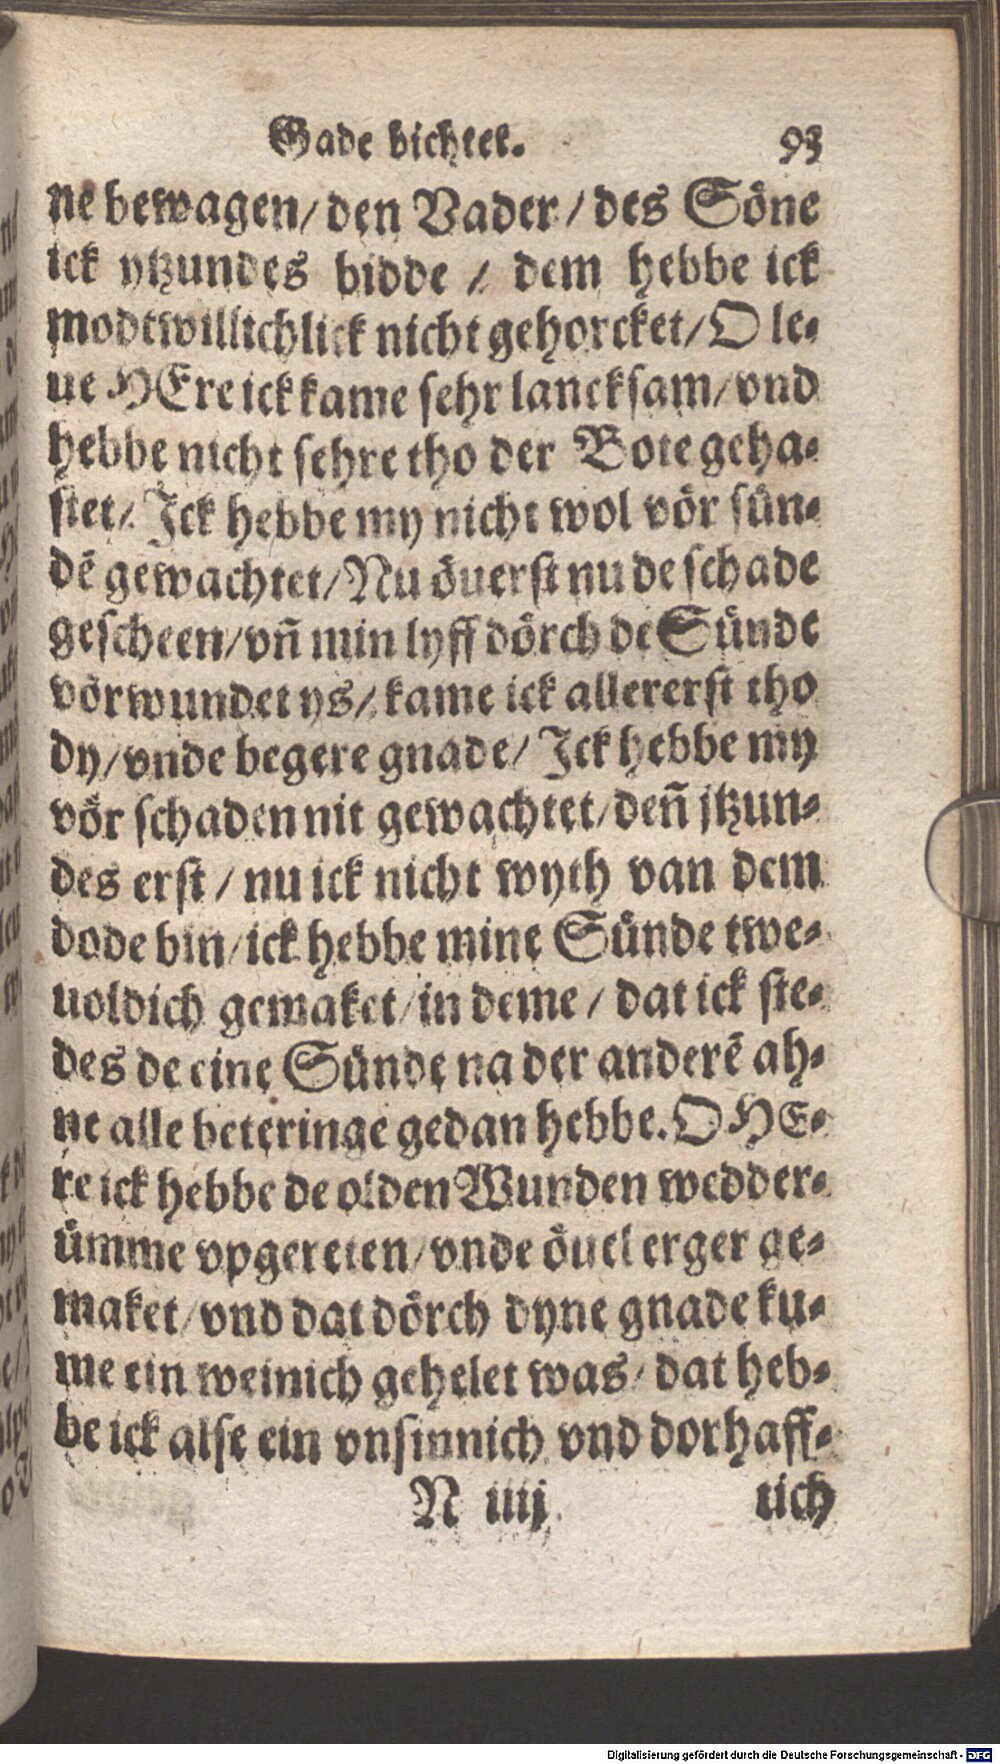 Gade bichtet. 93
ne bewagen/ den Vader/ des Söne
ick ytzundes bidde / dem hebbe ick
modtwillichlick nicht gehorcket/ O le-
ue HEre ick kame sehr lancksam/ vnd
hebbe nicht sehre tho der Bote geha-
stet/ Ick hebbe my nicht wol vör sün-
dē gewachtet/ Nu öuerst nu de schade
gescheen/ vñ min lyff dörch de Sünde
vörwundet ys/ kame ick allererst tho
dy/ vnde begere gnade/ Ick hebbe my
vör schaden nit gewachtet/ deñ jtzun-
des erst / nu ick nicht wyth van dem
dode bin/ ick hebbe mine Sünde twe-
uoldich gemaket/ in deme / dat ick ste-
des de eine Sünde na der anderē ah-
ne alle beteringe gedan hebbe. O HE-
re ick hebbe de olden Wunden wedder-
ümme vpgereten/ vnde öuel erger ge-
maket/ vnd dat dörch dyne gnade ku-
me ein weinich gehelet was/ dat heb-
be ick alse ein vnsinnich vnd dorhaff-
N iiij tich
Digitalisierung gefördert durch die Deutsche Forschungsgemeinschaft - DFG